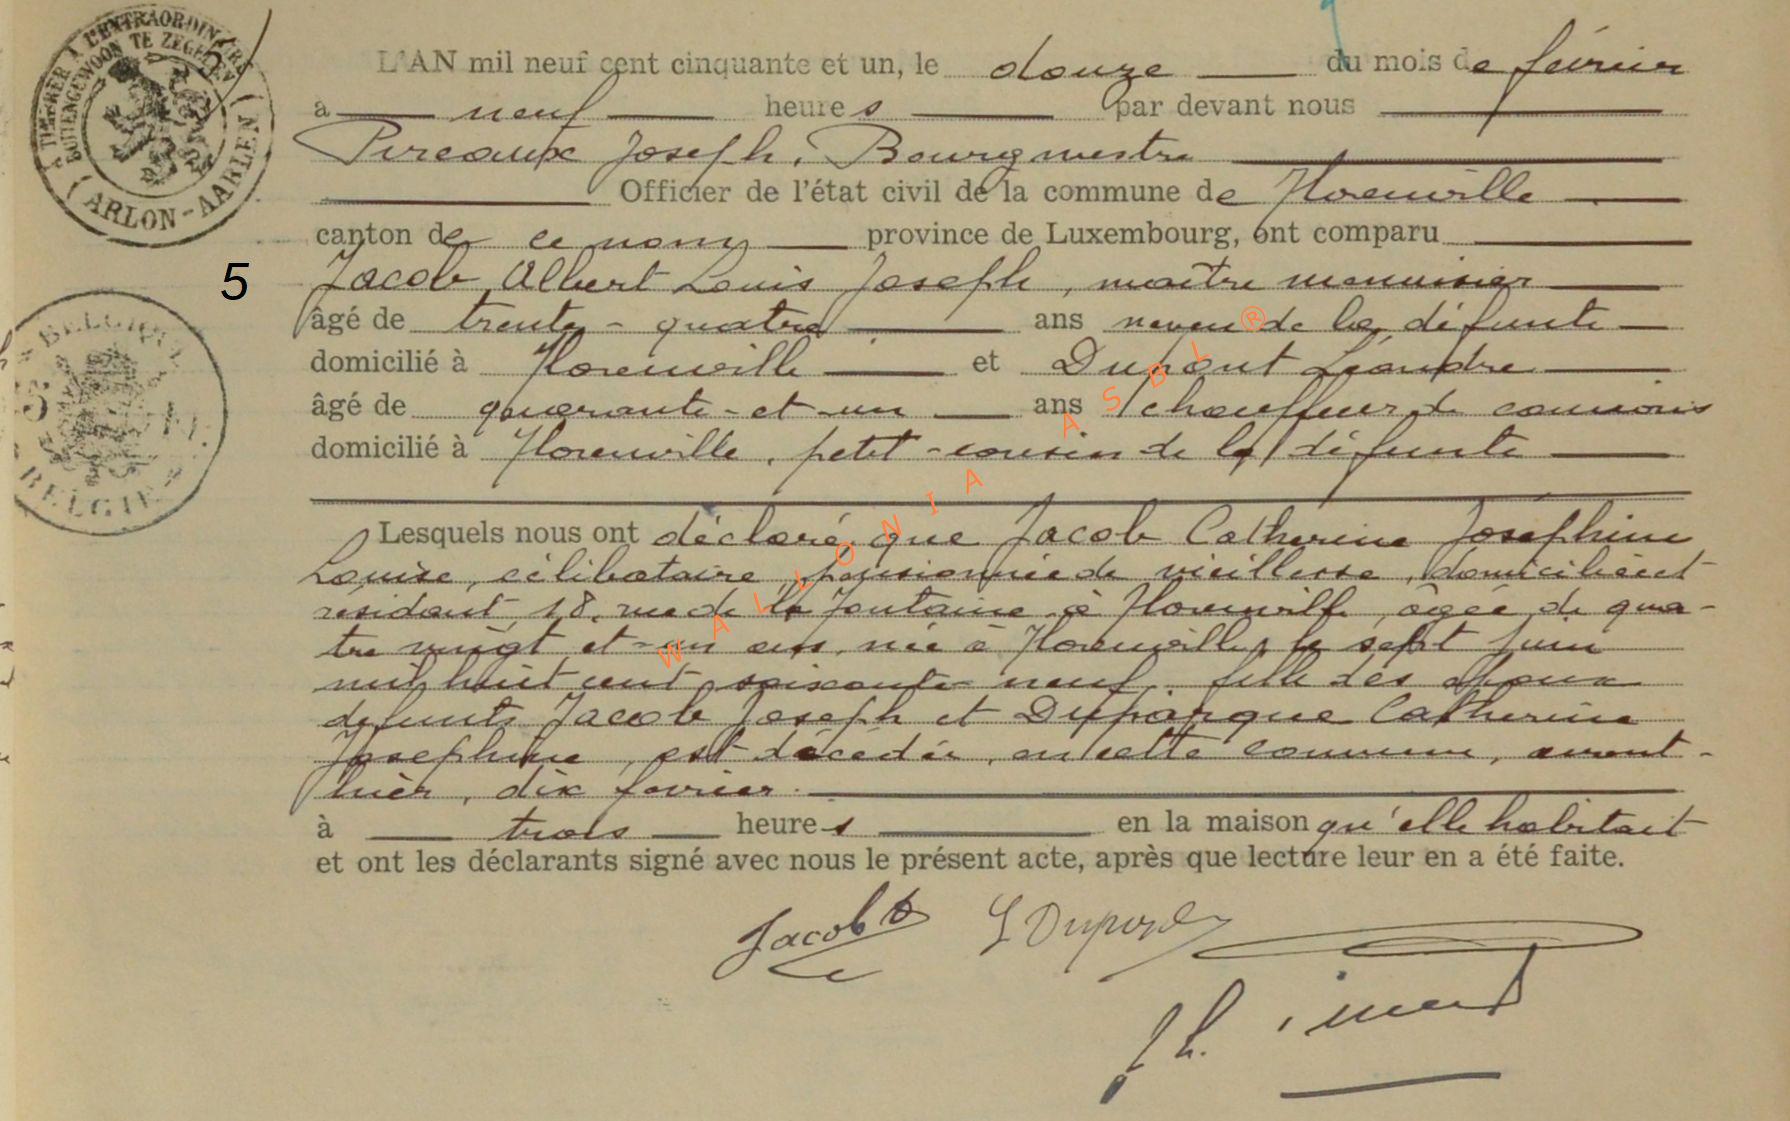 A TIMBRER A L'EXTRAORDINAIRE
BUITENGEWOON TE ZEGELEN
(ARLON-AARLEN)
5
BELGIQUE
BELGIE
L'AN mil neuf cent cinquante et un, le douze du mois de février
à neuf heures par devant nous
Pireaux Joseph, Bourgmestre
Officier de l'état civil de la commune de Florenville
canton de ce nom province de Luxembourg, ont comparu
Jacob Albert Louis Joseph, maître menuisier
âgé de trente-quatre ans neveu de la défunte
domicilié à Florenville et Dupont Léandre
âgé de quarante-et-un ans chauffeur de camions
domicilié à Florenville, petit-cousin de la défunte
Lesquels nous ont déclaré que Jacob Catherine Joséphine
Louise, célibataire, pensionnée de vieillesse, domiciliée et
résidant 18, rue de la Fontaine à Florenville, âgée de qua-
tre vingt et-un ans, née à Florenville, le sept juin
mil huit cent soixante-neuf, fille des époux
défunts Jacob Joseph et Duparque Catherine
Josephine, est décédée, en cette commune, avant-
hier, dix février.
à trois heures en la maison qu'elle habitait
et ont les déclarants signé avec nous le présent acte, après que lecture leur en a été faite.
Jacob
L Dupont
WALLONIA ASBL ®